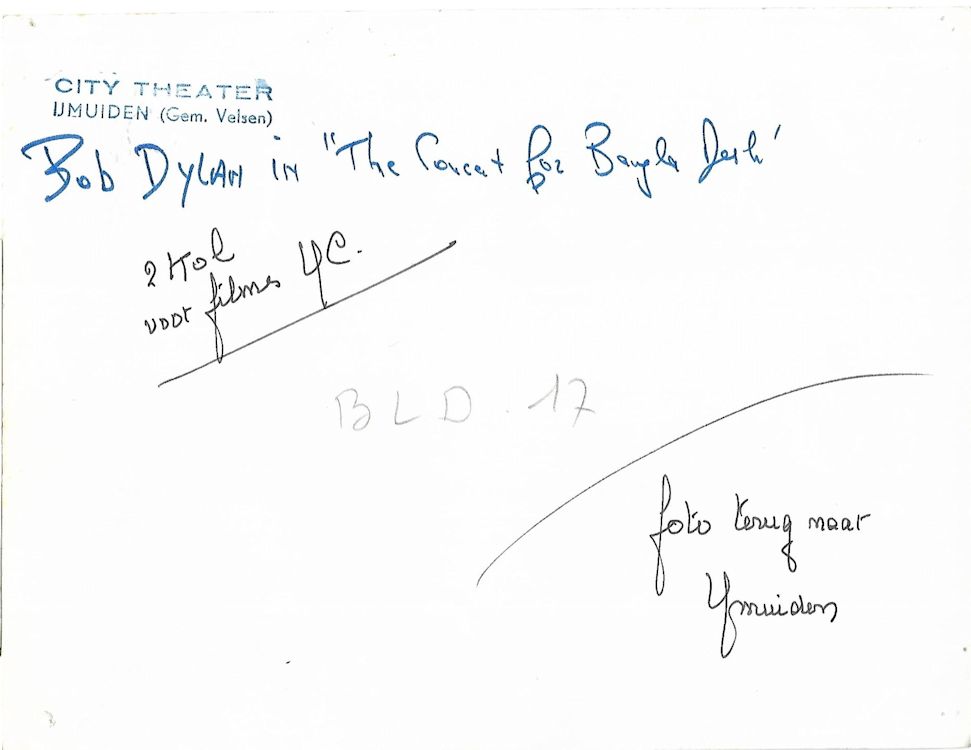 CITY THEATER
IJMUIDEN (Gem. Velsen)
Bob DYLAN in "The Concert for Bangla Desh'
2 kol
voor films YC.
BLD. 17
foto terug naar
Ymuiden